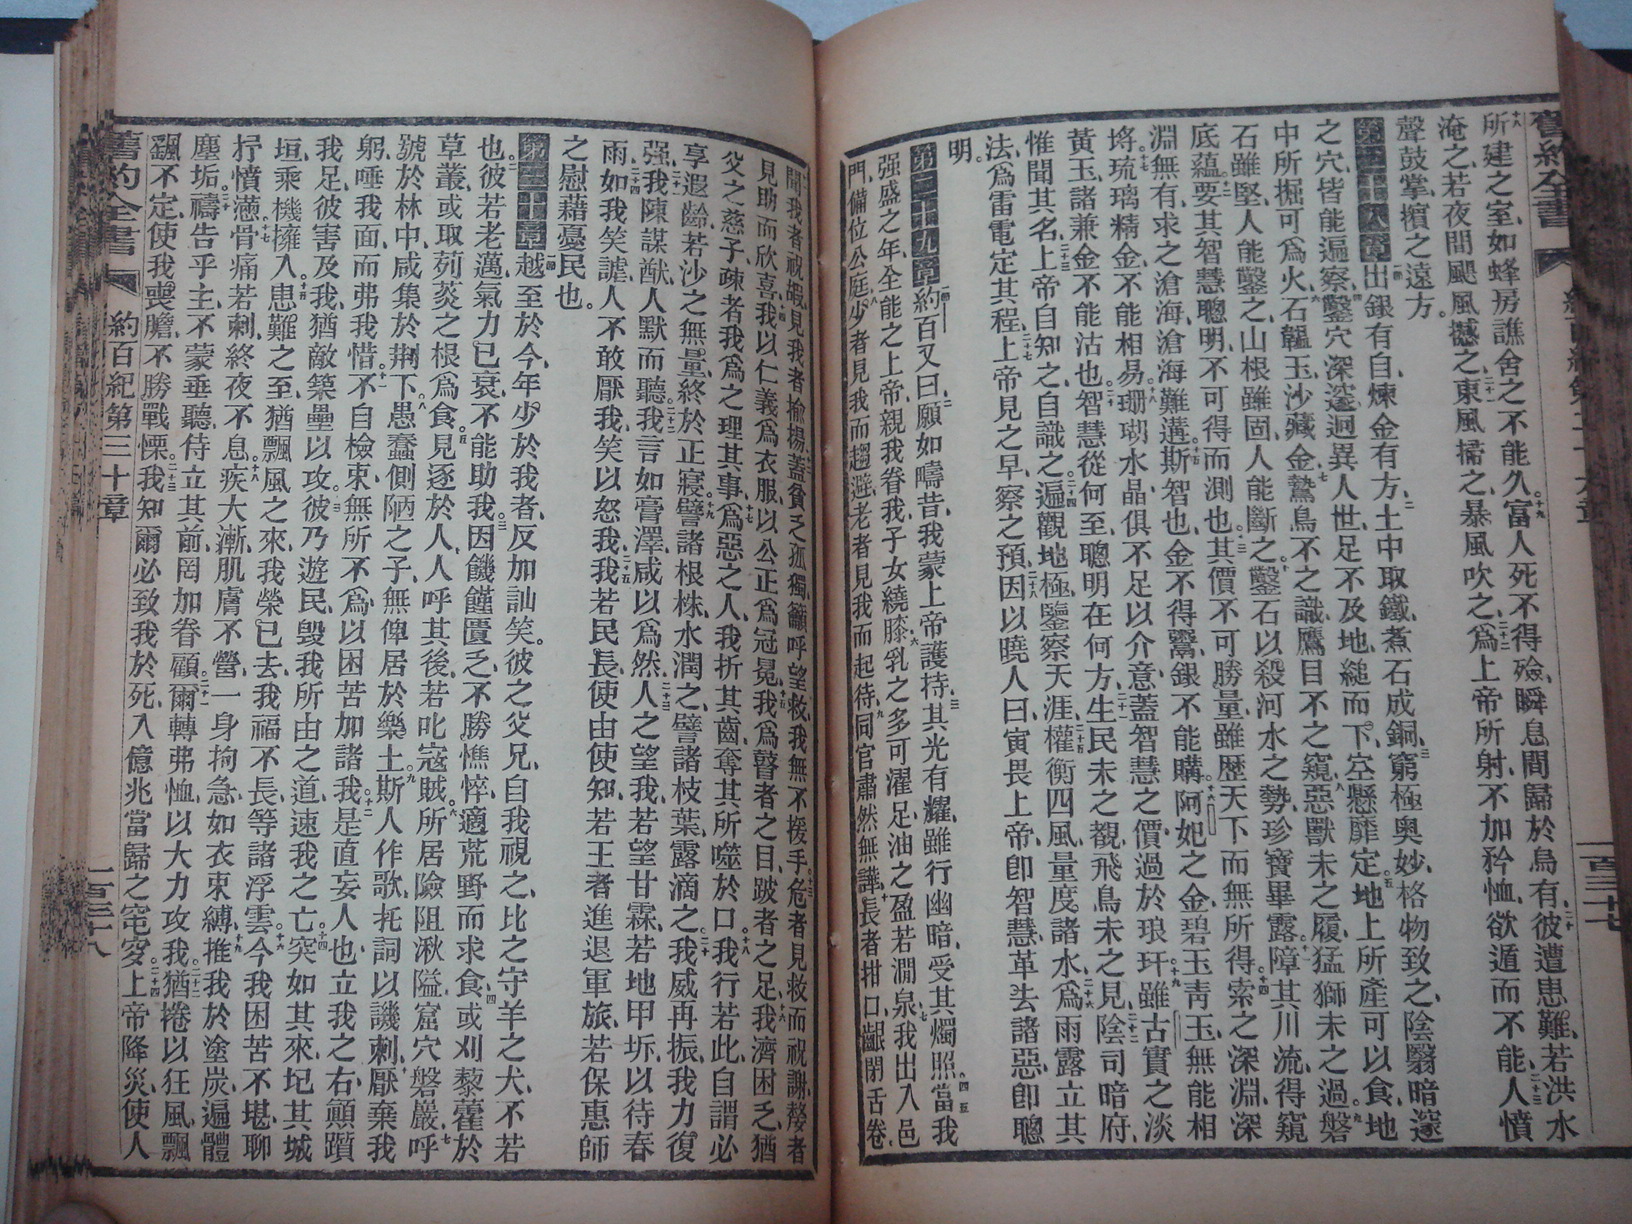 舊約全書
約百紀第二十八章
一百三十七
所建之室、如蜂房譙舍之不能久、富人死不得殮、瞬息間歸於烏有、彼遭患難、若洪水
淹之、若夜間颶風撼之、東風攜之、暴風吹之、爲上帝所射、不加矜恤、欲遁而不能、人憤
聲鼓掌、擯之遠方。
第二十八章 出銀有自、煉金有方、土中取鐵、煮石成銅、窮極奧妙、格物致之、陰翳暗邃
之穴、皆能遍察、鑿穴深邃、迥異人世、足不及地、縋而下、空懸靡定、地上所產可以食、地
中所掘可爲火、石韞玉、沙藏金、鷙鳥不之識、鷹目不之窺、惡獸未之履、猛獅未之過、磐
石雖堅、人能鑿之、山根雖固、人能斷之、鑿石以殺河水之勢、珍寶畢露、障其川流、得窺
底蘊、要其智慧聰明、不可得而測也、其價不可勝量、雖歷天下而無所得、索之深淵、深
淵無有、求之滄海、滄海難遘、斯智也、金不得鬻、銀不能購、阿妃之金、碧玉青玉、無能相
垿、琉璃精金、不能相易、珊瑚水晶、俱不足以介意、蓋智慧之價、過於琅玕、雖古實之淡
黃玉、諸兼金、不能沽也、智慧從何至、聰明在何方、生民未之覩、飛鳥未之見、陰司暗府、
惟聞其名、上帝自知之、自識之、遍觀地極、鑒察天涯、權衡四風、量度諸水、爲雨露立其
法、爲雷電定其程、上帝見之早、察之預、因以曉人曰、寅畏上帝、卽智慧、革去諸惡、卽聰
明。
第二十九章 約百又曰、願如疇昔、我蒙上帝護持、其光有耀、雖行幽暗、受其燭照、當我
强盛之年、全能之上帝、親我眷我、子女繞膝、乳之多可濯足、油之盈若澗泉、我出入邑
門、備位公庭、少者見我而趨避、老者見我而起待、同官肅然無譁、長者拑口、齦閉舌卷、
聞我者祝嘏、見我者揄揚、蓋貧乏孤獨、籲呼望救、我無不援手、危者見救而祝謝、嫠者
見助而欣喜、我以仁義爲衣服、以公正爲冠冕、我爲瞽者之目、跛者之足、我濟困乏、猶
父之慈子、疎者我爲之理其事、爲惡之人、我折其齒、奪其所噬於口、我行若此、自謂必
享遐齡、若沙之無量、終於正寢、譬諸根株、水潤之、譬諸枝葉、露滴之、我威再振、我力復
强、我陳謀猷、人默而聽、我言如膏澤、咸以爲然、人之望我、若望甘霖、若地甲坼、以待春
雨、如我笑謔、人不敢厭、我笑以怒我、我若民長、使由使知、若王者進退軍旅、若保惠師
之慰藉憂民也。
第三十章 越至於今、年少於我者、反加訕笑。彼之父兄、自我視之、比之守羊之犬、不若
也、彼若老邁、氣力已衰、不能助我、因饑饉匱乏、不勝憔悴、適荒野而求食、或刈藜藿於
草叢、或取茢茭之根爲食、見逐於人、人呼其後、若叱寇賊、所居險阻湫隘、窟穴磐巖、呼
號於林中、咸集於荆下、愚蠢側陋之子、無俾居於樂土、斯人作歌、托詞以譏刺、厭棄我
躬、唾我面而弗我惜、不自檢束、無所不爲、以困苦加諸我、是直妄人也、立我之右、顚躓
我足、彼害及我、猶敵築壘以攻、彼乃遊民、毀我所由之道、速我之亡、突如其來、圮其城
垣、乘機擁入、患難之至、猶飄風之來、我榮已去、我福不長、等諸浮雲、今我困苦不堪、聊
抒憤懣、骨痛若刺、終夜不息、疾大漸、肌膚不營、一身拘急、如衣束縛、推我於塗炭、遍體
塵垢、禱告乎主、不蒙垂聽、侍立其前、罔加眷顧、爾轉弗恤、以大力攻我、猶捲以狂風、飄
飄不定、使我喪膽、不勝戰慄、我知爾必致我於死、入億兆當歸之窀穸、上帝降災、使人
舊約全書
約百紀第三十章
一百三十八